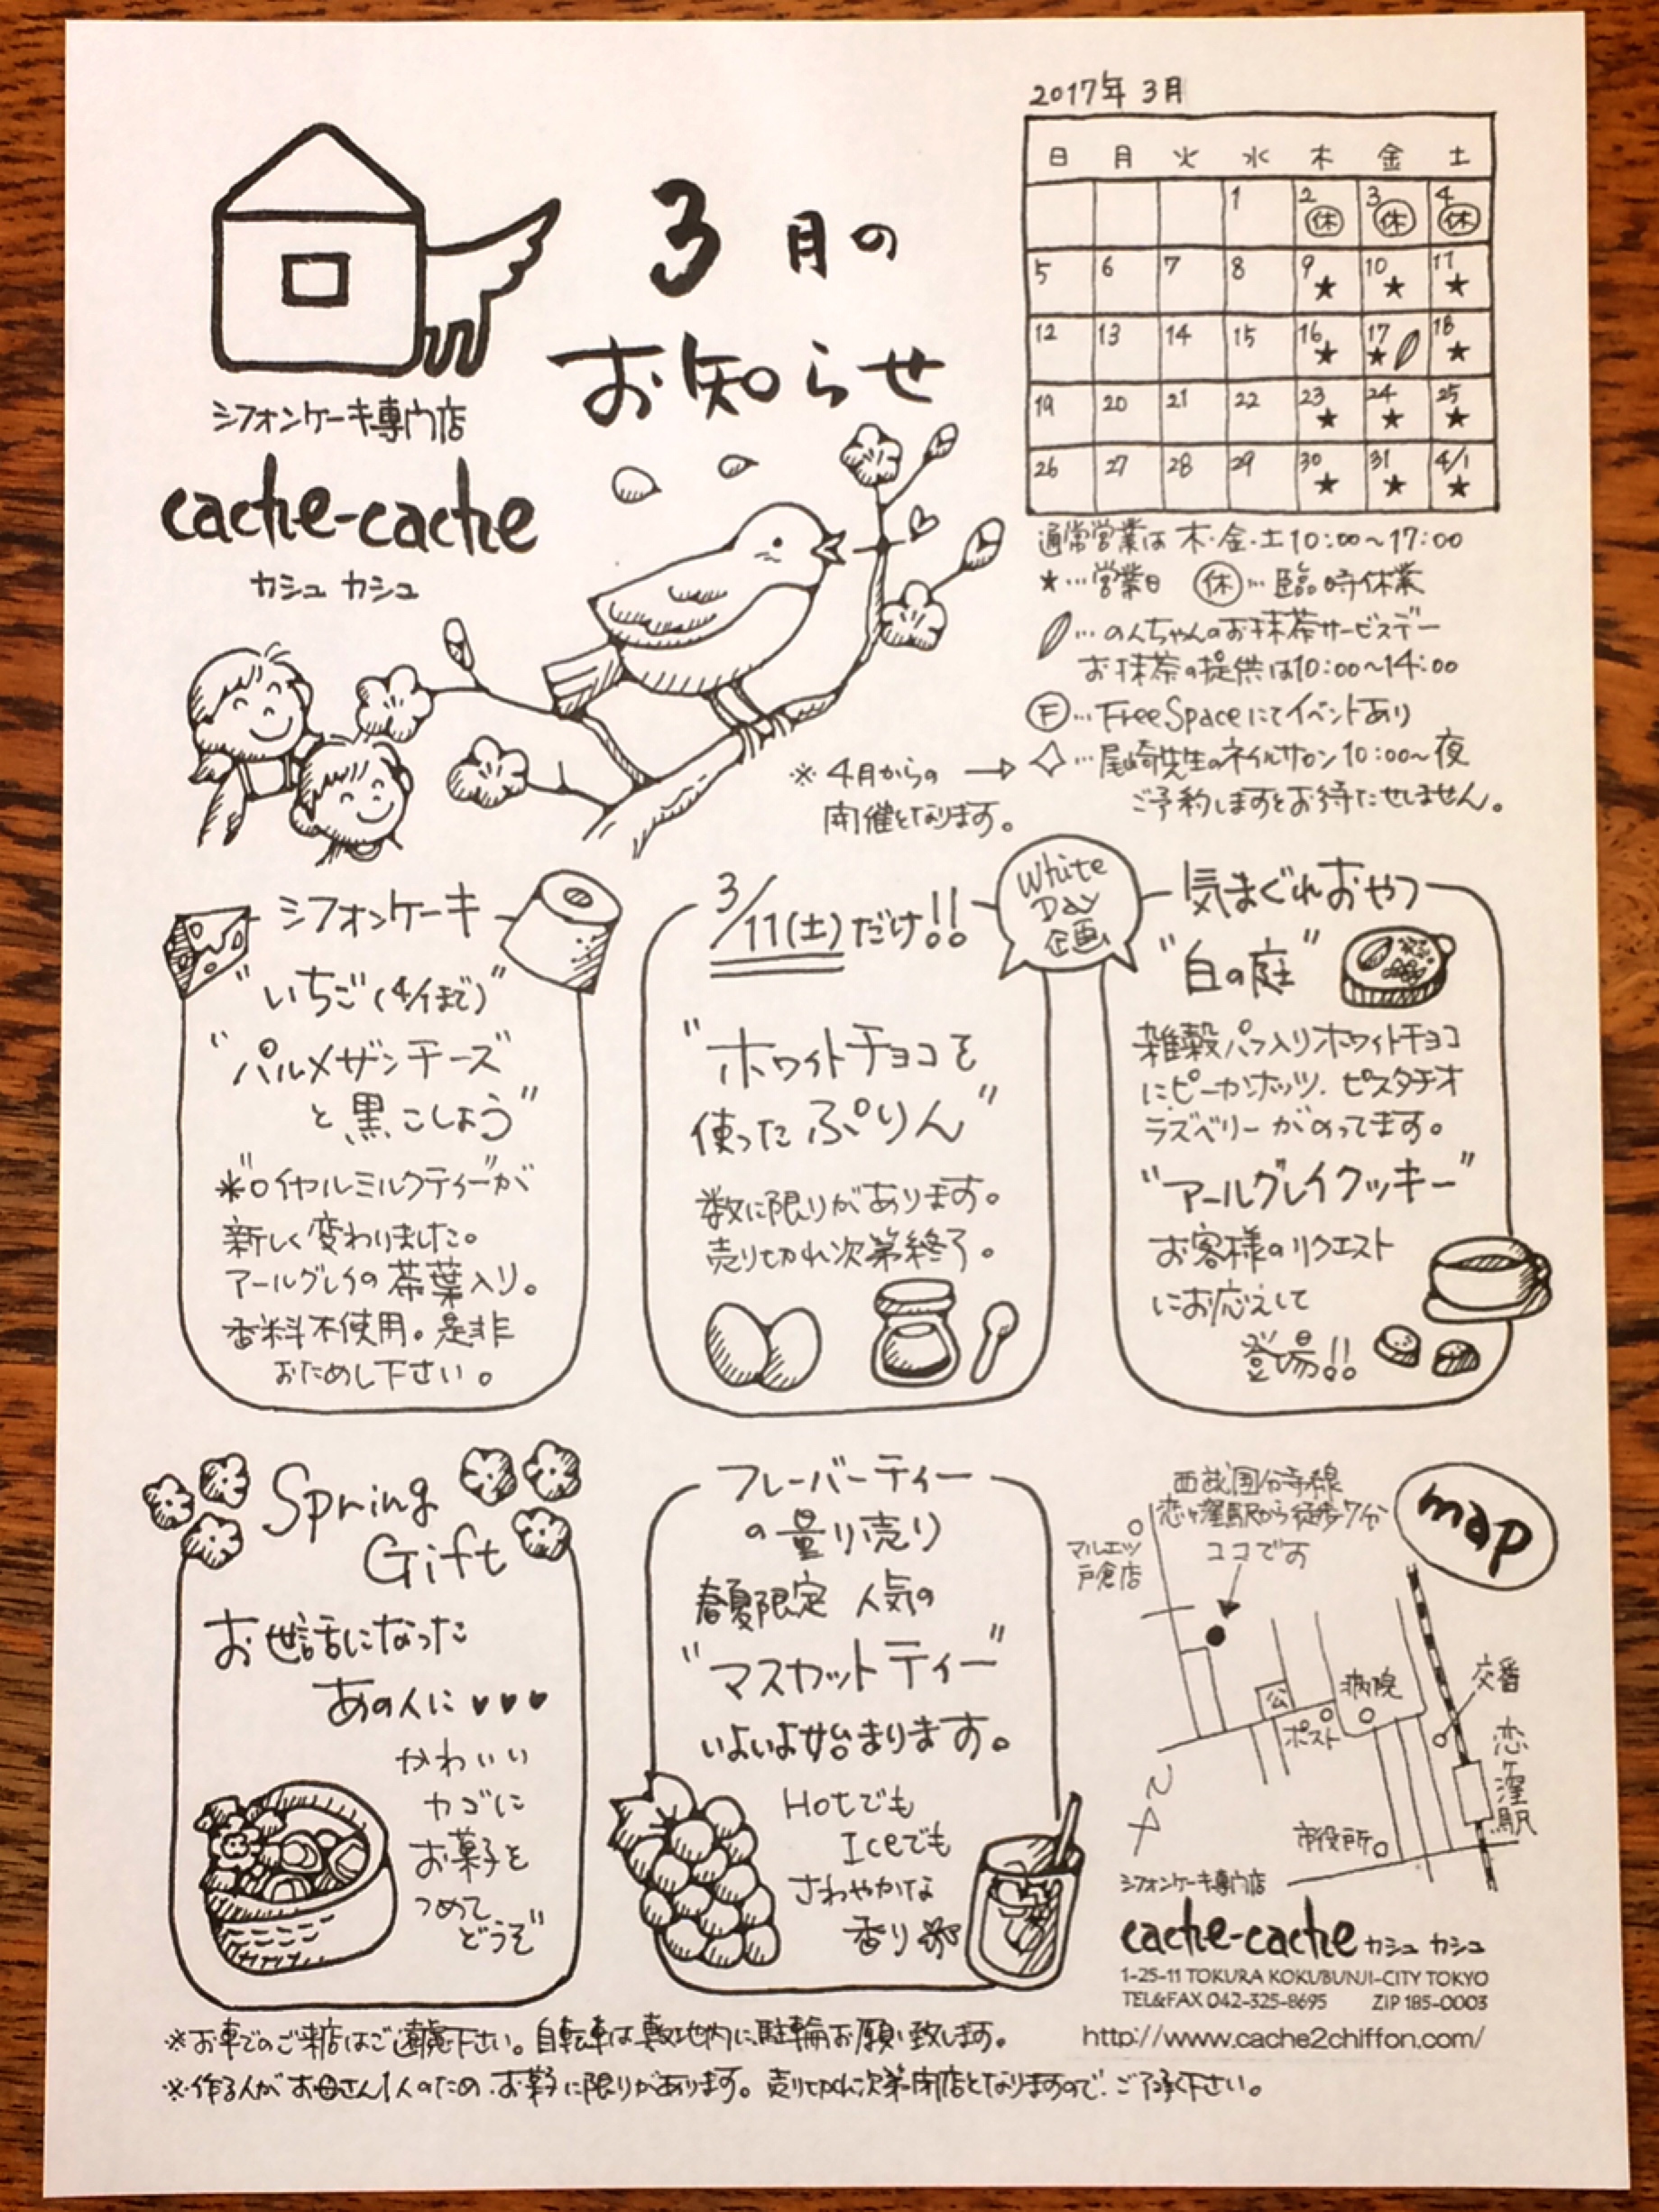 3月の
お知らせ
シフォンケーキ専門店
cache-cache
カシュ カシュ
2017年 3月
日 月 火 水 木 金 土
1 2 休 3 休 4 休
5 6 7 8 9 ★ 10 ★ 11 ★
12 13 14 15 16 ★ 17 ★ 18 ★
19 20 21 22 23 ★ 24 ★ 25 ★
26 27 28 29 30 ★ 31 ★ 4/1 ★
通常営業は 木・金・土 10:00〜17:00
★…営業日 休…臨時休業
…のんちゃんのお抹茶サービスデー
お抹茶の提供は10:00〜14:00
F…Free Spaceにてイベントあり
◇…尾崎先生のネイルサロン 10:00〜夜
ご予約しますとお待たせしません。
※4月からの →
開催となります。
シフォンケーキ
"いちご(4/1まで)"
"パルメザンチーズ
と黒こしょう"
*"ロイヤルミルクティー"が
新しく変わりました。
アールグレイの茶葉入り。
香料不使用。是非
おためし下さい。
3/11(土)だけ!!
White
Day
企画
"ホワイトチョコを
使ったぷりん"
数に限りがあります。
売り切れ次第終了。
気まぐれおやつ
"白の庭"
雑穀パフ入りホワイトチョコ
にピーカンナッツ、ピスタチオ
ラズベリーがのってます。
"アールグレイクッキー"
お客様のリクエスト
にお応えして
登場!!
Spring
Gift
お世話になった
あの人に♥♥♥
かわいい
カゴに
お菓子を
つめて
どうぞ
フレーバーティー
の量り売り
春夏限定 人気の
"マスカットティー"
いよいよ始まります。
Hotでも
Iceでも
さわやかな
香り
map
西武国分寺線
恋ヶ窪駅から徒歩7分
ココです
マルエツ
戸倉店
公
ポスト
病院
交番
恋ヶ窪駅
市役所
シフォンケーキ専門店
cache-cache カシュ カシュ
1-25-11 TOKURA KOKUBUNJI-CITY TOKYO
TEL&FAX 042-325-8695 ZIP 185-0003
http://www.cache2chiffon.com/
※お車でのご来店はご遠慮下さい。自転車は敷地内に駐輪お願い致します。
※作る人がお母さん1人のため、お菓子に限りがあります。売り切れ次第閉店となりますので、ご了承下さい。